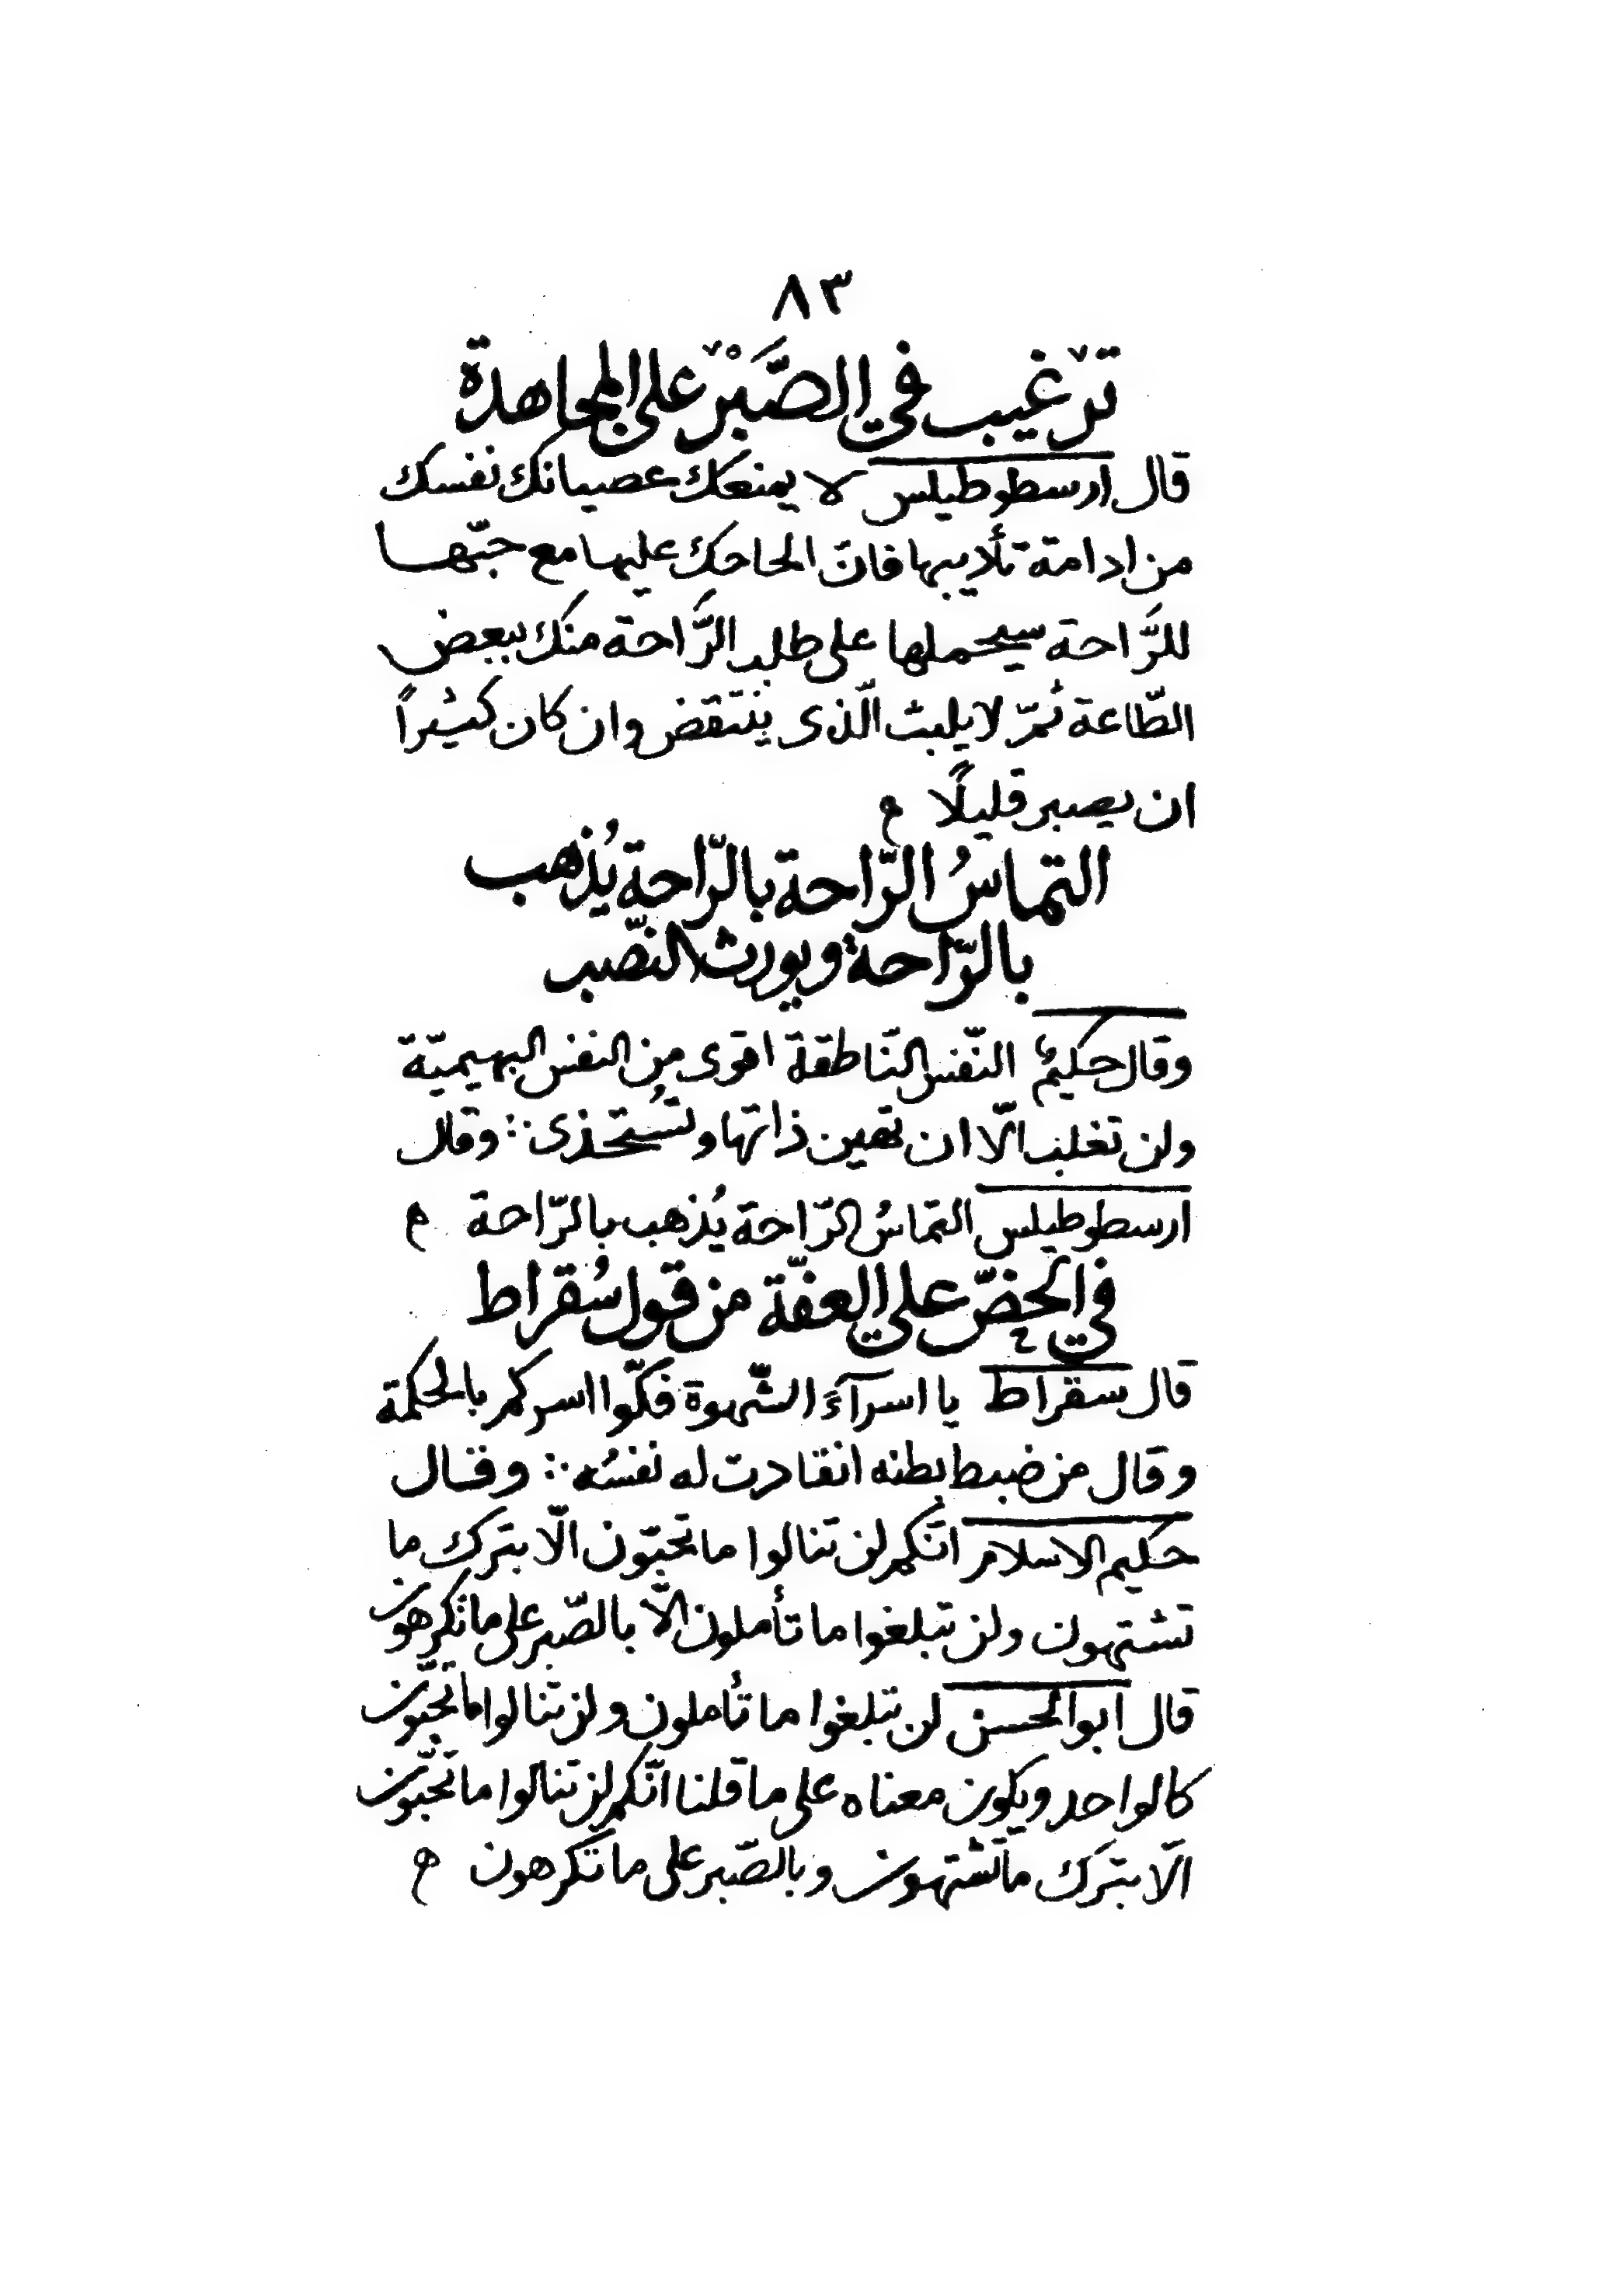 ٨٣
ترغيب في الصَّبْر على المجاهدة
قال ارسطوطيلس لا يمنعك عصيانك نفسك
من ادامة تأديبها فانّ الحاحك عليها مع حبّها
للرَّاحة سيحملها على طلب الرَّاحة منك ببعض
الطّاعة ثمّ لا يلبث الّذى ينتقض وان كان كثيراً
ان يصير قليلًا
التماسُ الرّاحة بالرّاحة يُذهب
بالرّاحة ويورث النصّب
وقال حكيمٌ النّفس النّاطقة اقوى من النفس البهيميّة
ولن تغلب الّا ان تهين ذاتها وتُستحذى ∴ وقال
ارسطوطيلس التماسُ الرّاحة يُذهب بالرّاحة
في الحضّ علي العفّة من قول سُقراط
قال سقراط يا اسرآءَ الشّهوة فكّوا اسركم بالحكمة
وقال من ضبط بطنه انقادت له نفسُه ∴ وقال
حكيم الاسلام انّكم لن تنالوا ما تحبّون الّا بترك ما
تشتهون ولن تبلغوا ما تأملون الّا بالصّبر على ما تكرهون
قال ابو الحسن لن تبلغوا ما تأملون ولن تنالوا ما تحبّون
كالواحد ويكون معناه على ما قلنا انّكم لن تنالوا ما تحبّون
الّا بترك ما تشتهون وبالصّبر على ما تكرهون